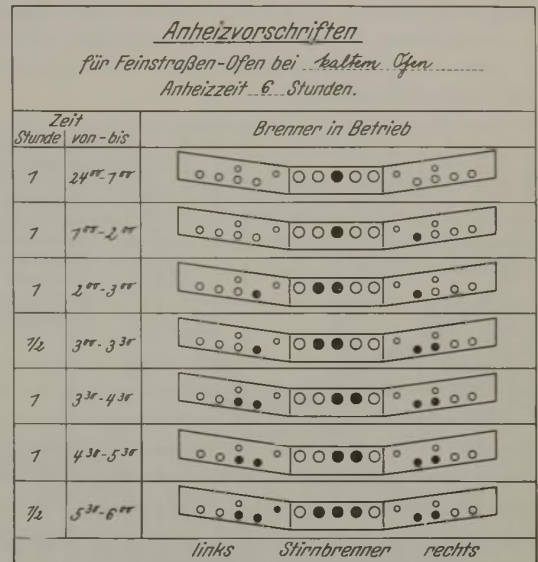 Anheizvorschriften
für Feinstraßen-Ofen bei kaltem Ofen
Anheizzeit 6 Stunden.
Zeit
Stunde von-bis
Brenner in Betrieb
1 24⁰⁰-1⁰⁰
1 1⁰⁰-2⁰⁰
1 2⁰⁰-3⁰⁰
1/2 3⁰⁰-3³⁰
1 3³⁰-4³⁰
1 4³⁰-5³⁰
1/2 5³⁰-6⁰⁰
links Stirnbrenner rechts